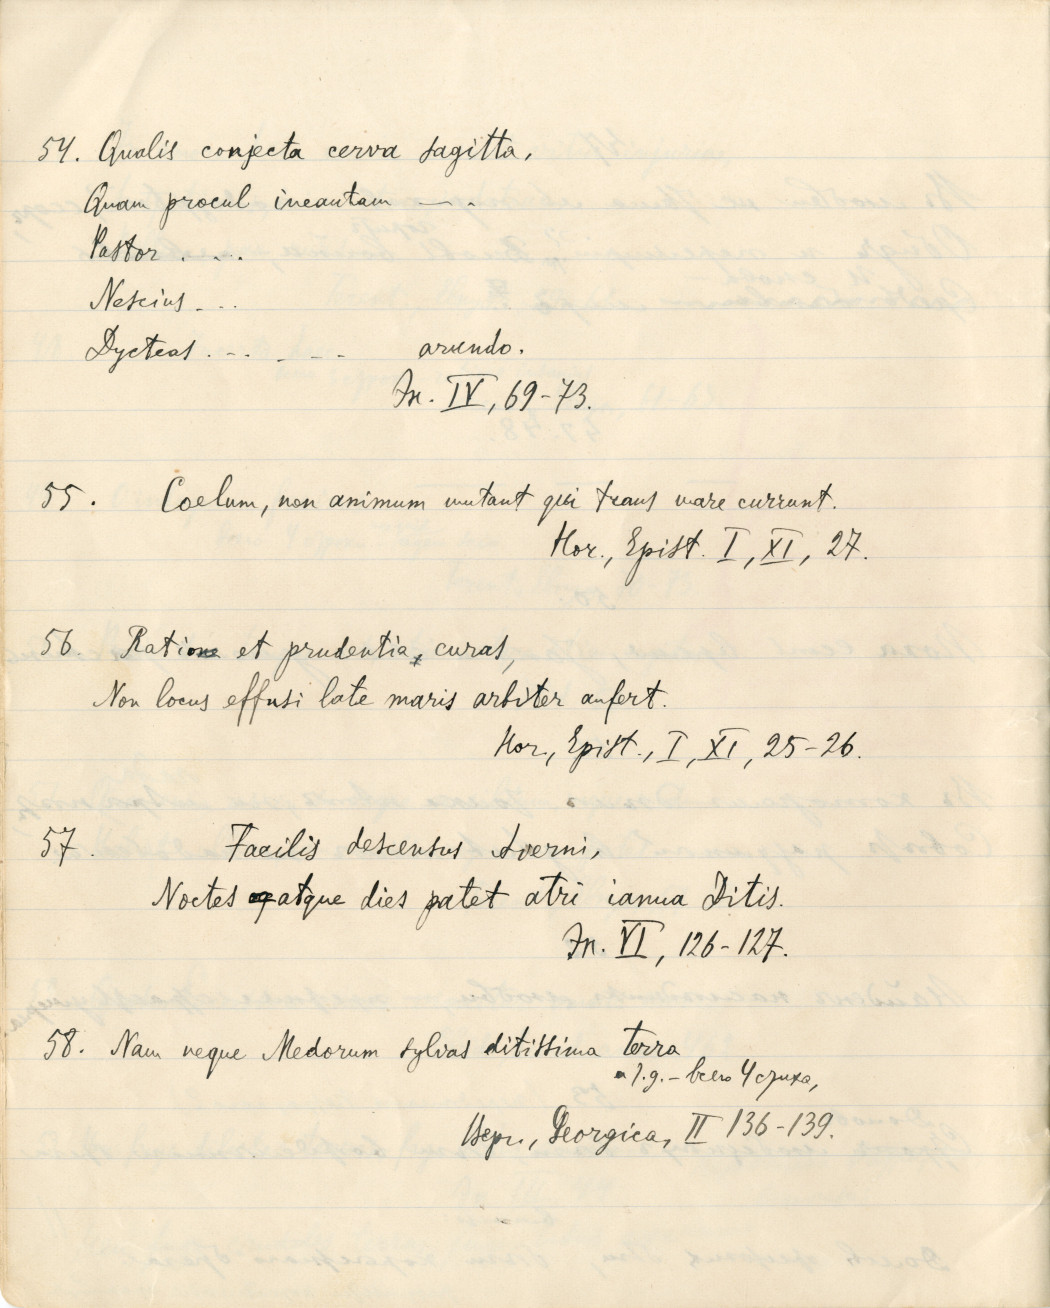 54. Qualis conjecta cerva sagitta,
Quam procul incautam — .
Pastor . . . .
Nescius . . .
Dycteas . - - . - - - arundo.
Æn. IV, 69-73.
55. Coelum, non animum mutant qui trans mare currunt.
Hor., Epist. I, XI, 27.
56. Ratione et prudentia, curas,
Non locus effusi late maris arbiter aufert.
Hor., Epist., I, XI, 25-26.
57. Facilis descensus Averni,
Noctes atque dies patet atri ianua Ditis.
Æn. VI, 126-127.
58. Nam neque Medorum sylvas ditissima terra
и т.д. - всего 4 стиха,
Верг., Georgica, II 136-139.